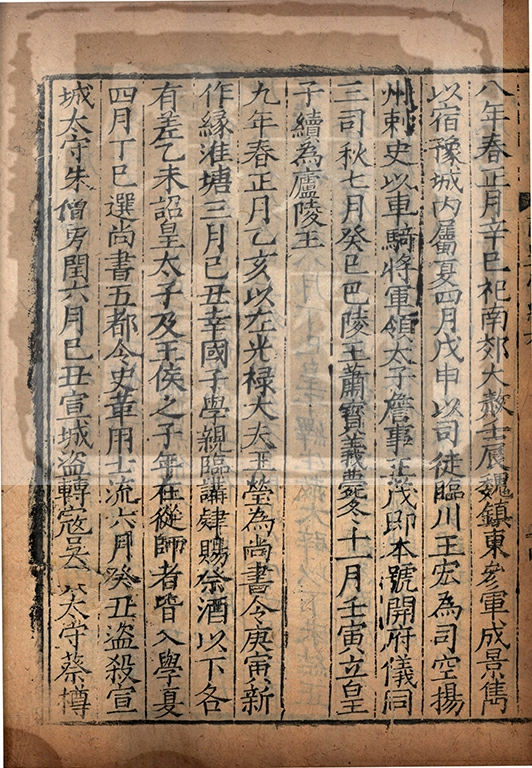 八年春正月辛巳祀南郊大赦壬辰魏鎮東參軍成景雋
以宿豫城内屬夏四月戊申以司徒臨川王宏為司空揚
州刺史以車騎將軍領太子詹事王茂即本號開府儀同
三司秋七月癸巳巴陵王蕭寶義薨冬十一月壬寅立皇
子續為廬陵王
九年春正月乙亥以左光禄大夫王瑩為尚書令庚寅新
作緣淮塘三月己丑幸國子學親臨講肄賜祭酒以下各
有差乙未詔皇太子及王侯之子年在從師者皆入學夏
四月丁巳選尚書五都令史革用士流六月癸丑盜殺宣
城太守朱僧勇閏六月己丑宣城盜轉寇吳太守蔡樽